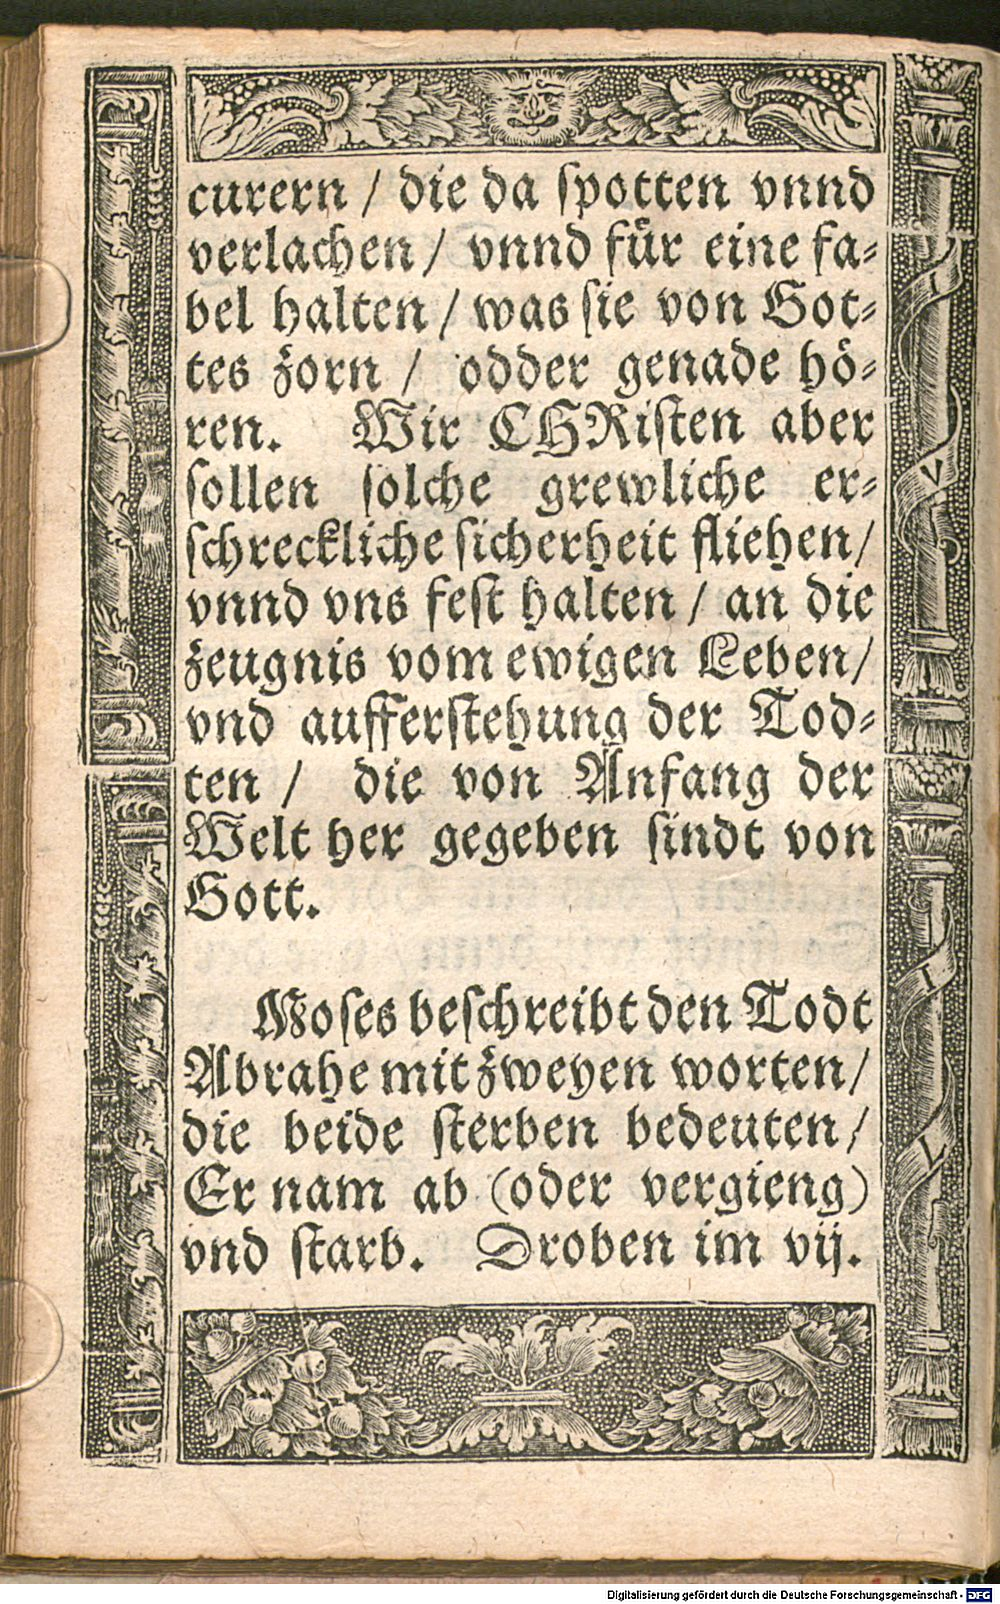 curern / die da spotten vnnd
verlachen / vnnd für eine fa⸗
bel halten / was sie von Got⸗
tes zorn / odder genade hö⸗
ren. Wir CHRisten aber
sollen solche grewliche er⸗
schreckliche sicherheit fliehen /
vnnd vns fest halten / an die
zeugnis vom ewigen Leben /
vnd aufferstehung der Tod⸗
ten / die von Anfang der
Welt her gegeben sindt von
Gott.
Moses beschreibt den Todt
Abrahe mit zweyen worten /
die beide sterben bedeuten /
Er nam ab (oder vergieng)
vnd starb. Droben im vij.
I
V
I
L
Digitalisierung gefördert durch die Deutsche Forschungsgemeinschaft - DFG